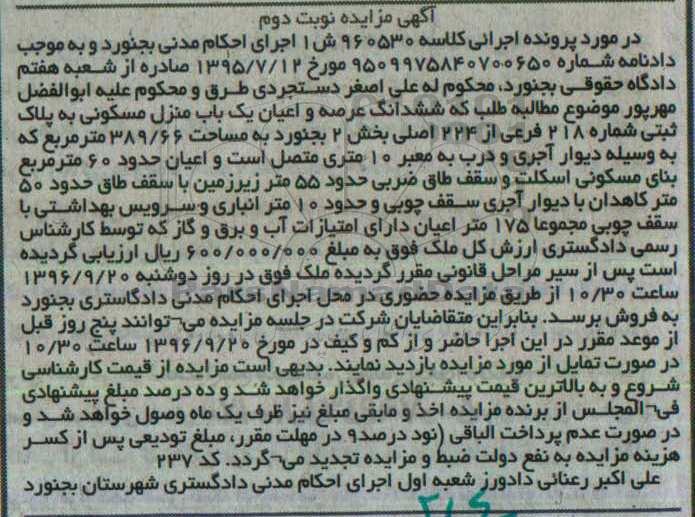 آگهی مزایده نوبت دوم
در مورد پرونده اجرائی کلاسه ۹۶۰۵۳۰ ش۱ اجرای احکام مدنی بجنورد و به موجب
دادنامه شماره ۹۵۰۹۹۷۵۸۴۰۷۰۰۶۵۰ مورخ ۱۳۹۵/۷/۱۲ صادره از شعبه هفتم
دادگاه حقوقی بجنورد، محکوم له علی اصغر دستجردی طرق و محکوم علیه ابوالفضل
مهرپور موضوع مطالبه طلب که ششدانگ عرصه و اعیان یک باب منزل مسکونی به پلاک
ثبتی شماره ۲۱۸ فرعی از ۲۲۴ اصلی بخش ۲ بجنورد به مساحت ۳۸۹/۶۶ مترمربع که
به وسیله دیوار آجری و درب به معبر ۱۰ متری متصل است و اعیان حدود ۶۰ مترمربع
بنای مسکونی اسکلت و سقف طاق ضربی حدود ۵۵ متر زیرزمین با سقف طاق حدود ۵۰
متر کاهدان با دیوار آجری سقف چوبی و حدود ۱۰ متر انباری و سرویس بهداشتی با
سقف چوبی مجموعا ۱۷۵ متر اعیان دارای امتیازات آب و برق و گاز که توسط کارشناس
رسمی دادگستری ارزش کل ملک فوق به مبلغ ۶۰۰/۰۰۰/۰۰۰ ریال ارزیابی گردیده
است پس از سیر مراحل قانونی مقرر گردیده ملک فوق در روز دوشنبه ۱۳۹۶/۹/۲۰
ساعت ۱۰/۳۰ از طریق مزایده حضوری در محل اجرای احکام مدنی دادگاستری بجنورد
به فروش برسد. بنابراین متقاضایان شرکت در جلسه مزایده می¬توانند پنج روز قبل
از موعد مقرر در این اجرا حاضر و از کم و کیف در مورخ ۱۳۹۶/۹/۲۰ ساعت ۱۰/۳۰
در صورت تمایل از مورد مزایده بازدید نمایند. بدیهی است مزایده از قیمت کارشناسی
شروع و به بالاترین قیمت پیشنهادی واگذار خواهد شد و ده درصد مبلغ پیشنهادی
فی¬المجلس از برنده مزایده اخذ و مابقی مبلغ نیز ظرف یک ماه وصول خواهد شد و
در صورت عدم پرداخت الباقی (نود درصد۹ در مهلت مقرر، مبلغ تودیعی پس از کسر
هزینه مزایده به نفع دولت ضبط و مزایده تجدید می¬گردد. کد ۲۳۷
علی اکبر رعنائی دادورز شعبه اول اجرای احکام مدنی دادگستری شهرستان بجنورد